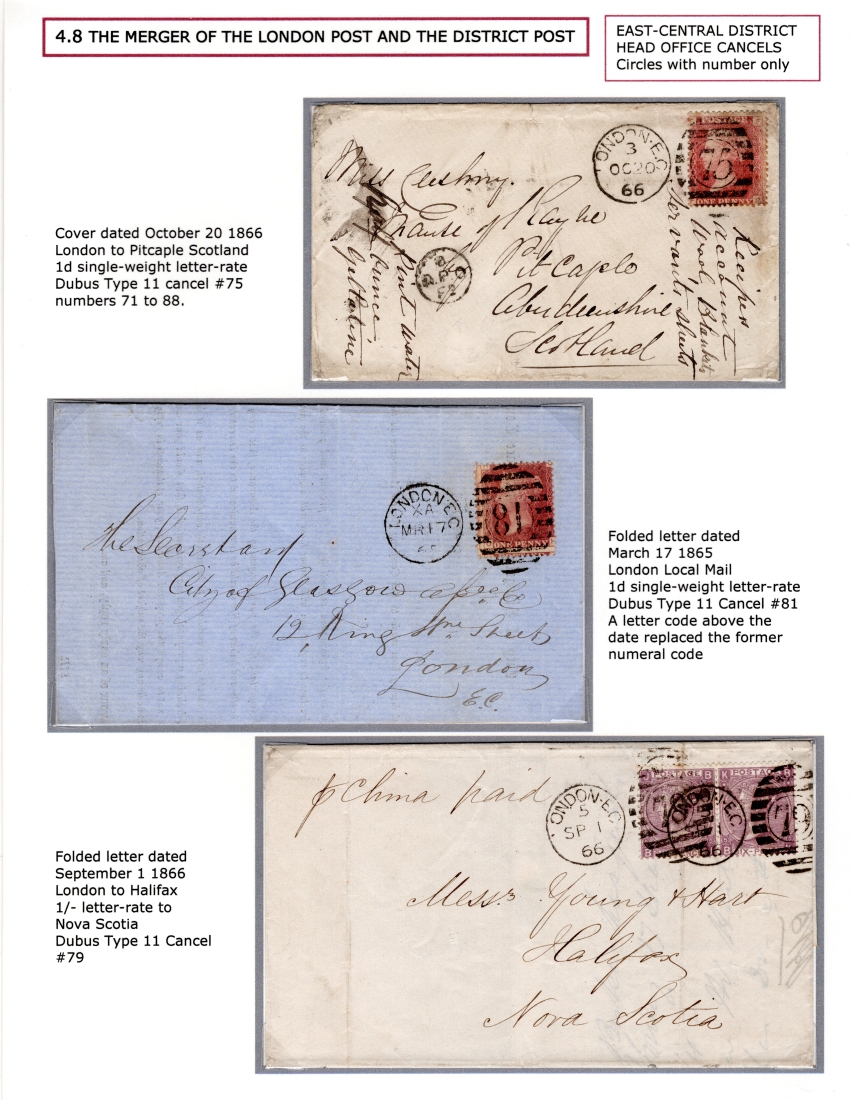 4.8 THE MERGER OF THE LONDON POST AND THE DISTRICT POST
EAST-CENTRAL DISTRICT
HEAD OFFICE CANCELS
Circles with number only
Cover dated October 20 1866
London to Pitcaple Scotland
1d single-weight letter-rate
Dubus Type 11 cancel #75
numbers 71 to 88.
LONDON·E.C
3
OC20
66
POSTAGE
75
ONE PENNY
Miss
Manse of Rayne
Pitcaple
Aberdeenshire
Scotland
Recipes
Account
Wool Blankets
Servants sheets
water
Quince
Folded letter dated
March 17 1865
London Local Mail
1d single-weight letter-rate
Dubus Type 11 Cancel #81
A letter code above the
date replaced the former
numeral code
LONDON·E.C
XA
MR17
81
ONE PENNY
The Secretary
City of Glasgow
12 King Wm Street
London
E.C.
Folded letter dated
September 1 1866
London to Halifax
1/- letter-rate to
Nova Scotia
Dubus Type 11 Cancel
#79
p China paid
LONDON·E.C
5
SP 1
66
POSTAGE B
K POSTAGE B
LONDON·E.C
66
Messrs Young & Hart
Halifax
Nova Scotia